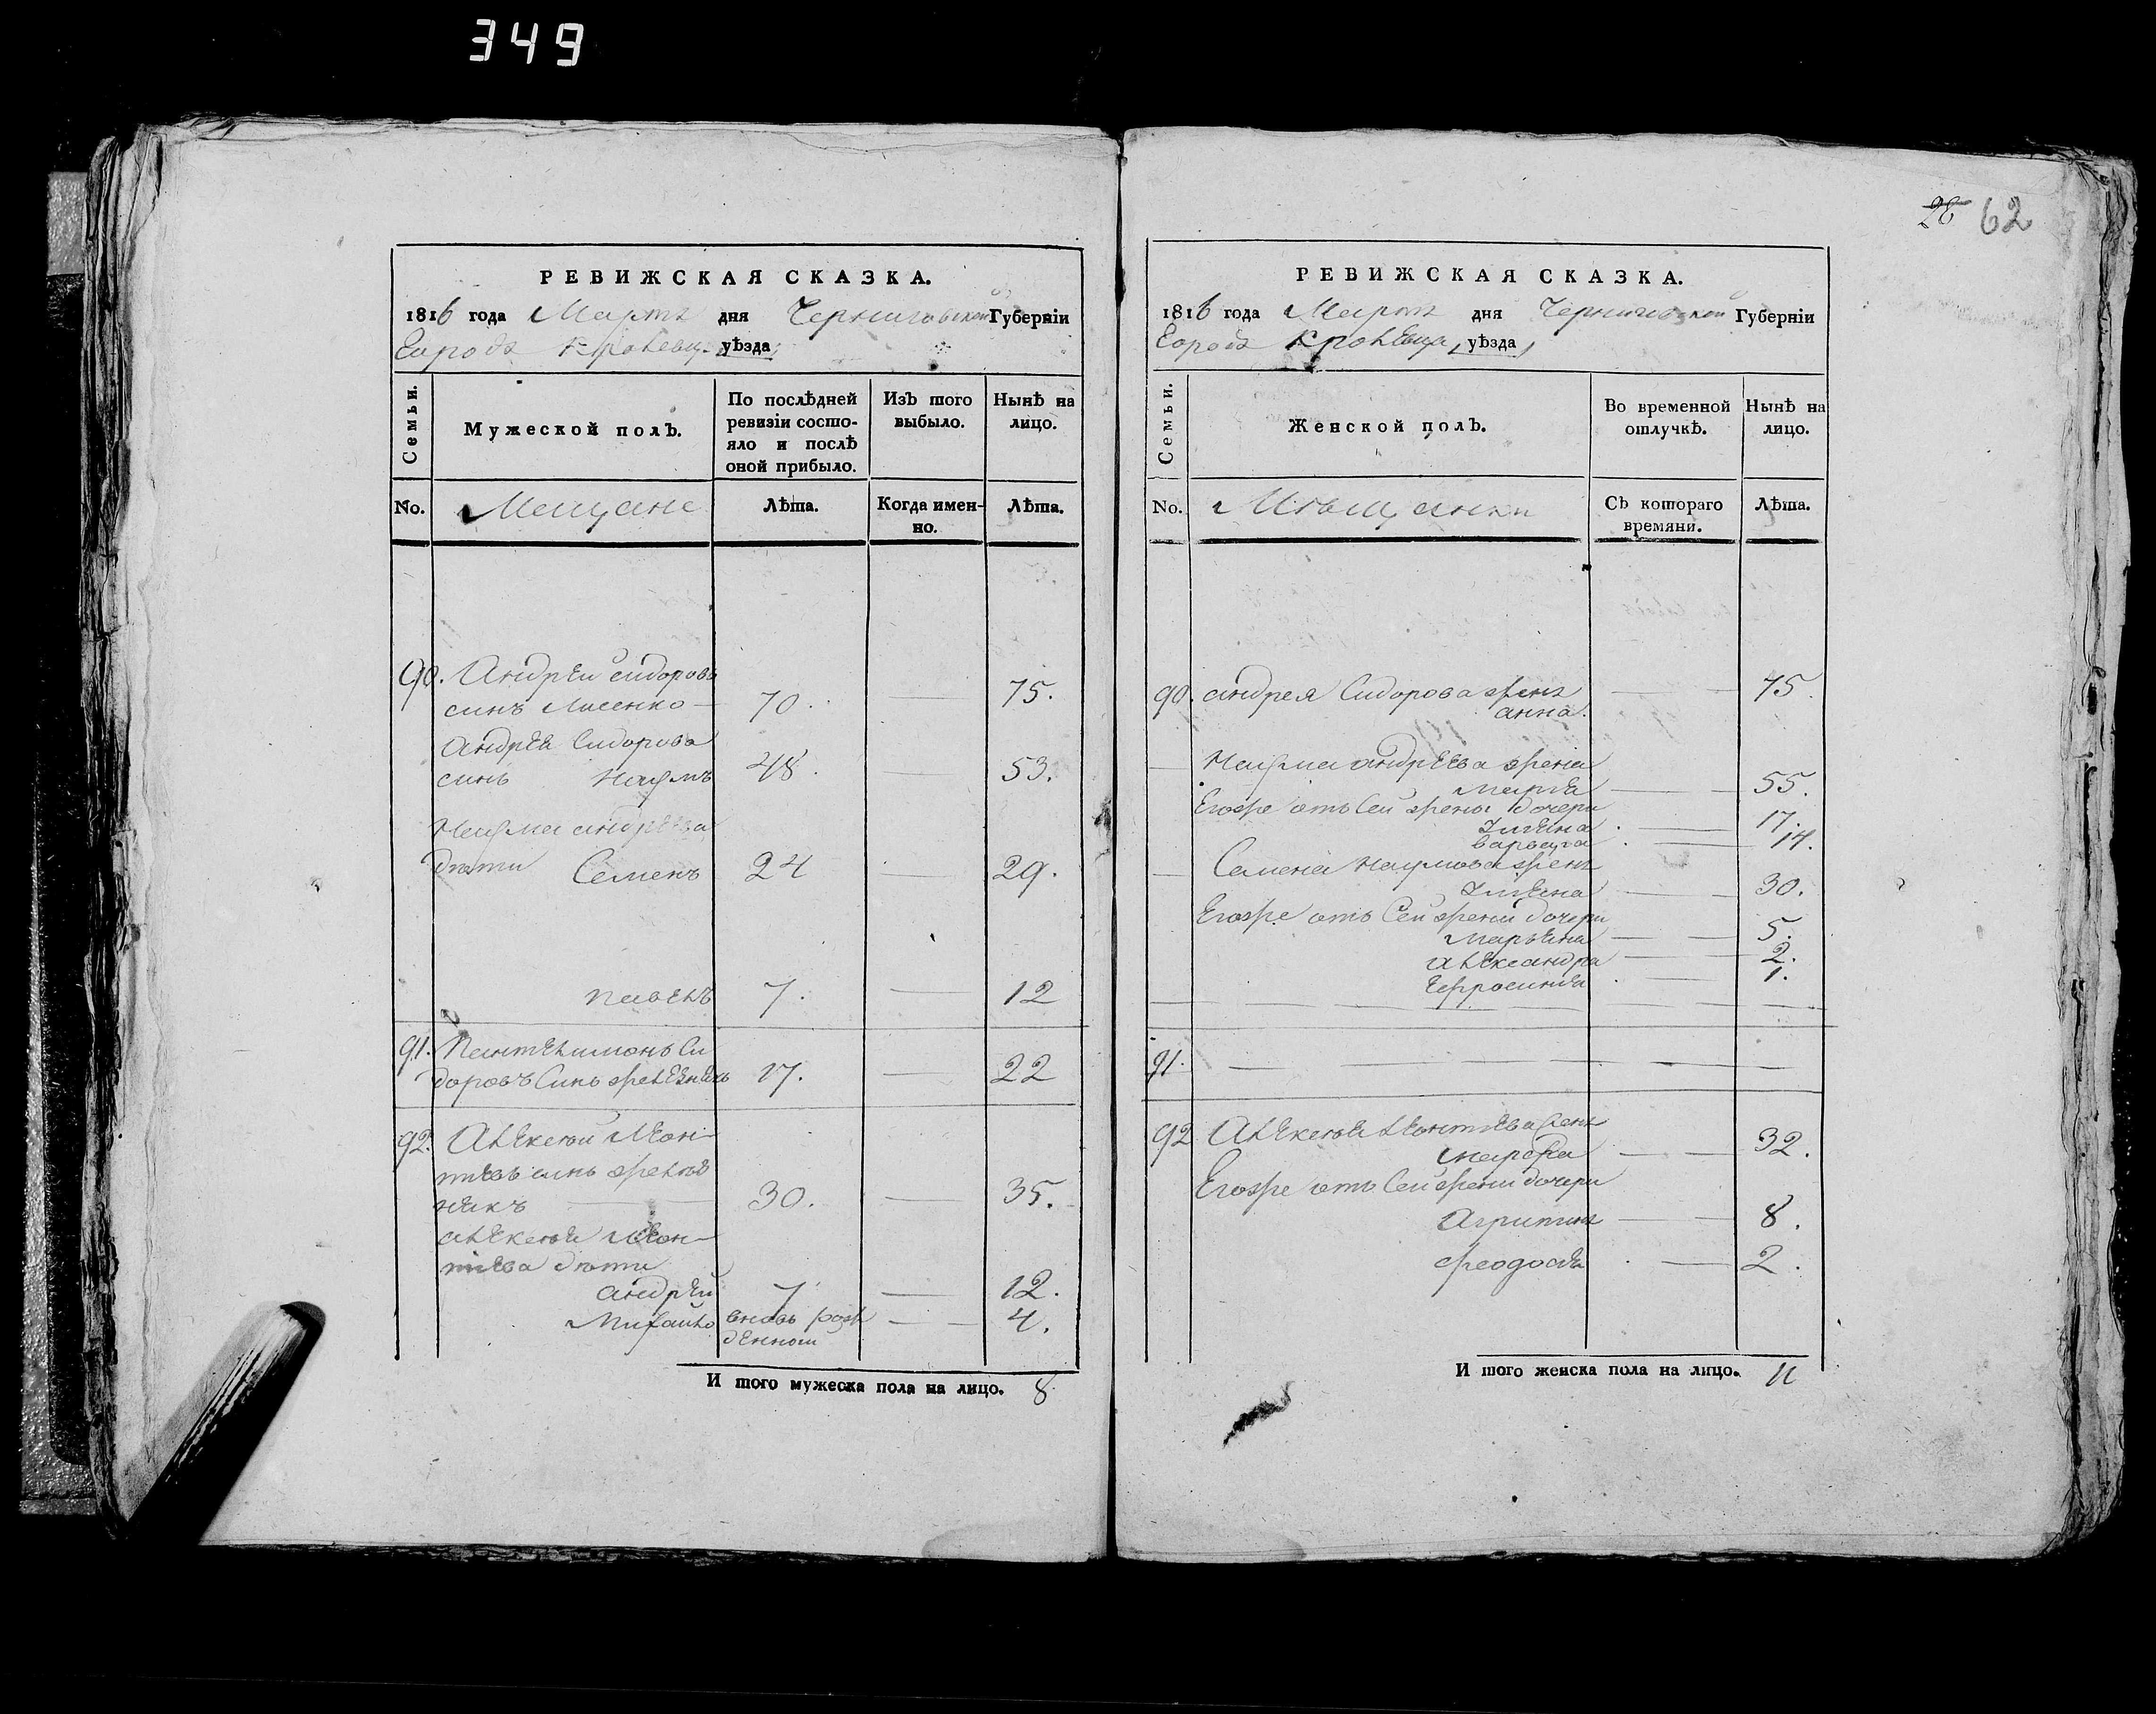 349
РЕВИЖСКАЯ СКАЗКА.
1816 года Мартъ дня Черниговской Губерніи
Города Кролевца уѣзда
Семьи.
Мужеской полъ.
По послѣдней ревизіи состо-
яло и послѣ
оной прибыло.
Изъ того
выбыло.
Нынѣ на
лицо.
No.
Мещане
Лѣта.
Когда имен-
но.
Лѣта.
90. Андрей Сидоровъ
синъ Лисенко — 70. — 75.
Андрея Сидорова
синъ Наумъ 48. 53.
Наума андреева
дѣти Семенъ 24 — 29.
павелъ 7. — 12
91. Пантелимонъ Си
доровъ Синъ 17. — 22
92. Алексей Леон-
тиевъ синъ
30. — 35.
алексея Леон-
тиева дѣти
андрей 7. — 12.
Михайло вновь рож
денной — 4.
И того мужеска пола на лицо. 8
28 62
РЕВИЖСКАЯ СКАЗКА.
1816 года Мартъ дня Черниговской Губерніи
Города Кролевца, уѣзда,
Семьи.
Женской полъ.
Во временной
отлучкѣ.
Нынѣ на
лицо.
No.
Мѣщанки
Съ котораго
времяни.
Лѣта.
90. андрея Сидорова жена
анна. — 75.
Наума андреева жена
мария — 55.
Егоже отъ Сей жены дочери
17.
варвара 14.
Семена наумова жена
30.
Егоже отъ Сей жени дочери
Марьяна — 5.
александра — 2.
Ефросиния 1.
91.
92 Алексея Леонтиева жена
марфа — 32.
Егоже отъ Сей жени дочери
Агрипина — 8.
феодосия — 2.
И того женска пола на лицо. 11